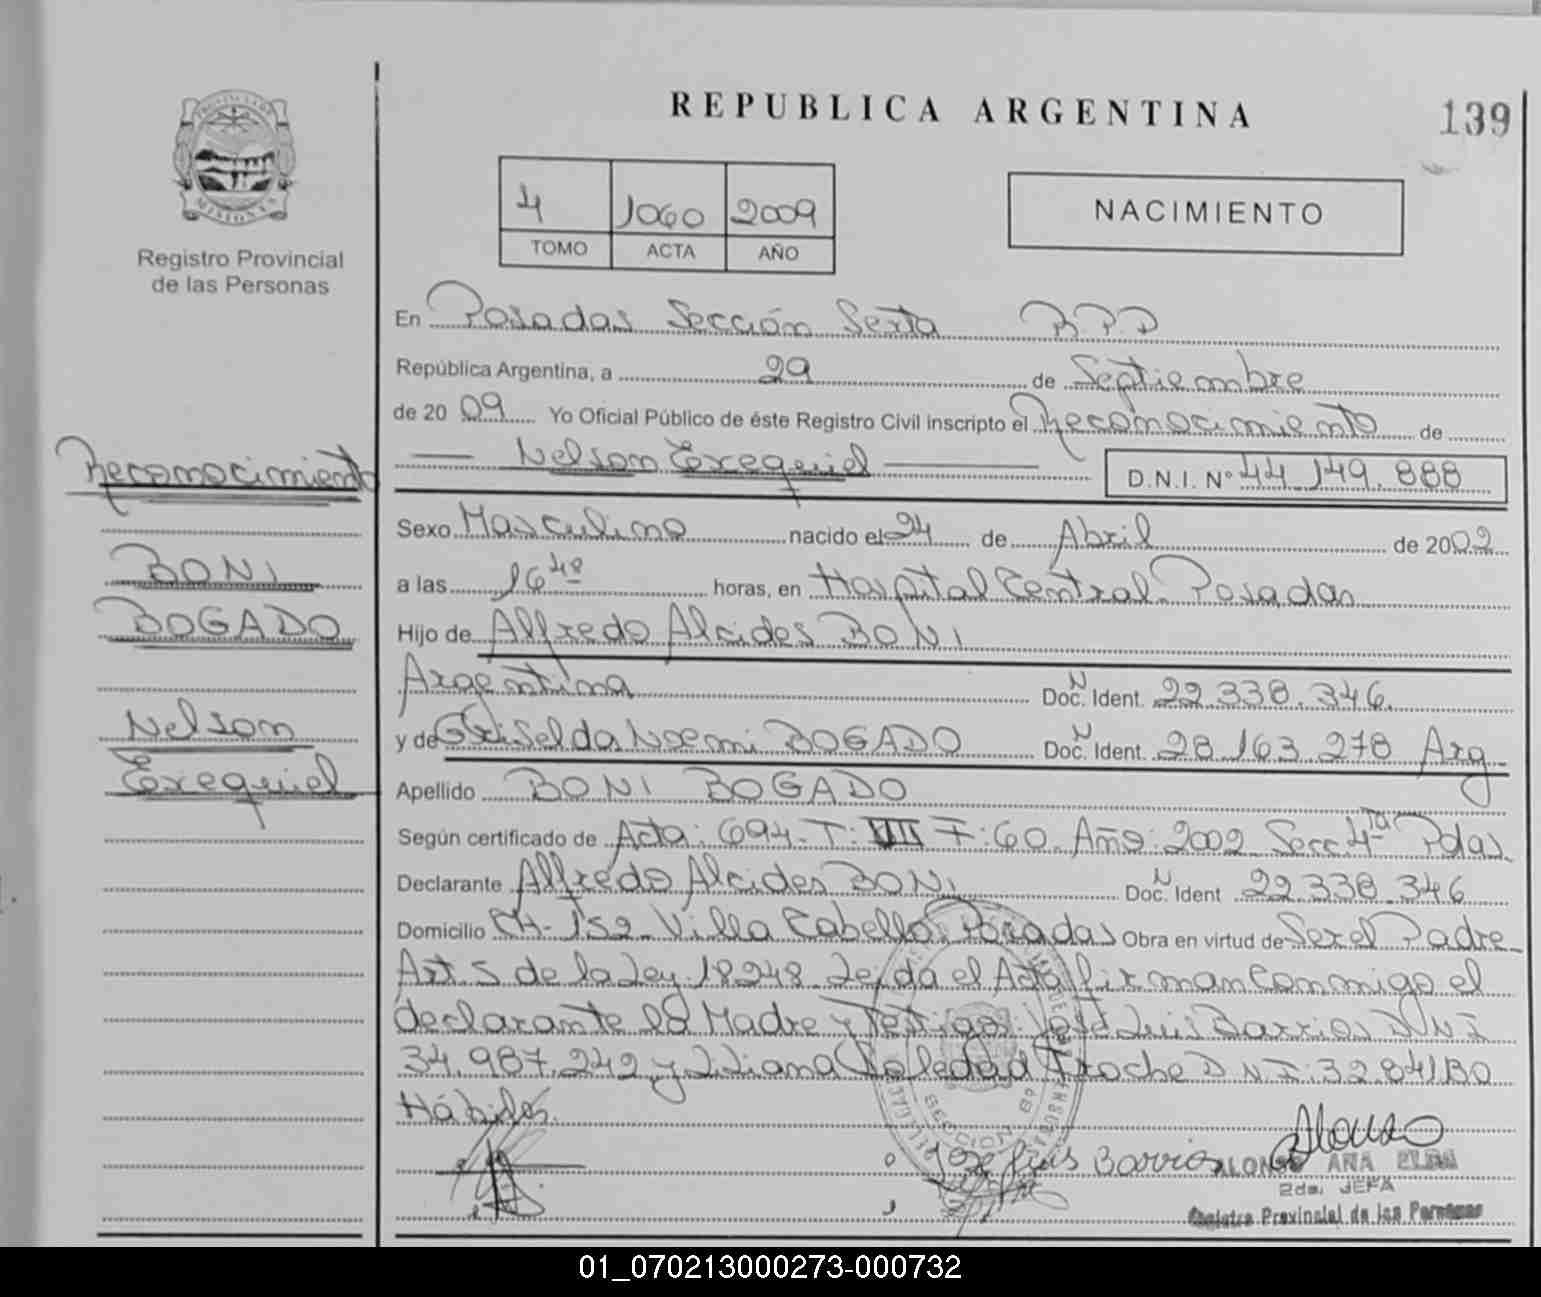 REPUBLICA ARGENTINA
139
MISIONES
Registro Provincial
de las Personas
4 1060 2009
TOMO ACTA AÑO
NACIMIENTO
En Posadas Sección Sexta
República Argentina, a 29 de Septiembre
de 20 09 Yo Oficial Público de éste Registro Civil inscripto el Reconocimiento de
Nelson Exequiel D.N.I. Nº 44.149.888
Sexo Masculino nacido el 24 de Abril de 2002
a las 16 48 horas, en Hospital Central Posadas
Hijo de Alfredo Alcides BONI
Argentina Doc. N Ident. 22.338.346.
y de Griselda Noemi BOGADO Doc. N Ident. 28.163.278 Arg
Apellido BONI BOGADO
Según certificado de Acta: 694- T: VIII F: 60. Año: 2002 Secc 4ta Pdas.
Declarante Alfredo Alcides BONI Doc. N Ident 22.338.346
Domicilio CH- 152- Villa Cabello Posadas Obra en virtud de Ser el Padre
Art. 5 de la Ley 18248. Leida el Acta firman conmigo el
declarante la Madre y Testigos: José Luis Barrios D N I
34.987.242 y Liliana Soledad Troche D N I: 32.841130
Hábiles.
Reconocimiento
BONI
BOGADO
Nelson
Exequiel
SECCION 6º
José Luis Barrios
Alonso
ALONSO ANA ELBA
2da. JEFA
Registro Provincial de las Personas
01_070213000273-000732